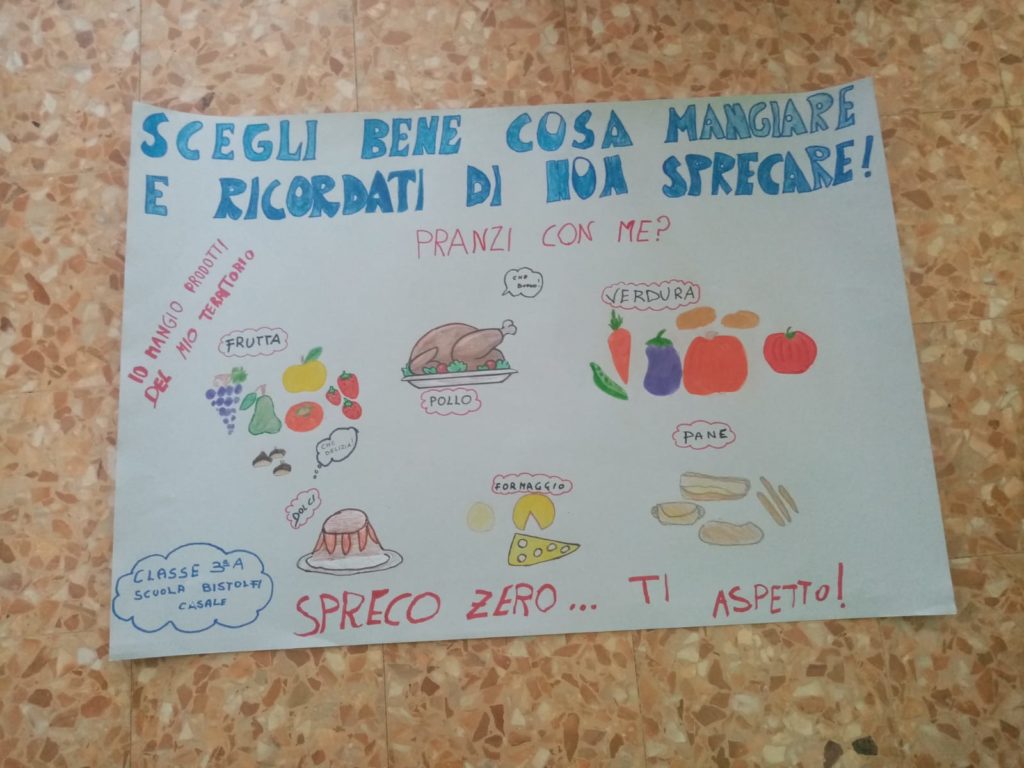 SCEGLI BENE COSA MANGIARE
E RICORDATI DI NON SPRECARE!
PRANZI CON ME?
IO MANGIO PRODOTTI
DEL MIO TERRITORIO
CHE
BUONO!
VERDURA
FRUTTA
POLLO
CHE
DELIZIA!
PANE
FORMAGGIO
DOLCI
CLASSE 3ª A
SCUOLA BISTOLFI
CASALE
SPRECO ZERO... TI ASPETTO!